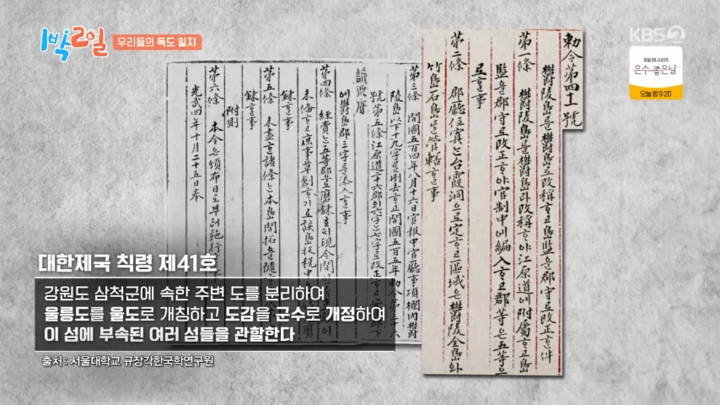 1박2일
우리들의 독도 일지
KBS2
은수 좋은 날
오늘 밤 9:20
勅令第四十一號
欝陵島를欝島로改稱ᄒᆞ고島監을郡守로改正ᄒᆞᆫ件
第一條 欝陵島를欝島라改稱ᄒᆞ야江原道에附屬ᄒᆞ고島
監을郡守로改正ᄒᆞ야官制中에編入ᄒᆞ고郡等은五等으
로ᄒᆞᆯ事
第二條 郡廳位寘는台霞洞으로定ᄒᆞ고區域은欝陵全島와
竹島石島를管轄ᄒᆞᆯ事
第三條 開國五百四年八月十六日官報中官廳事項欄內欝
陵島以下十九字를刪去ᄒᆞ고開國五百五年勅令第
號第五條江原道二十六郡의六字는七字로改正ᄒᆞ고
에欝島郡三字를添入ᄒᆞᆯ事
第四條 經費는五等郡으로磨鍊호ᄃᆡ現今間
未備ᄒᆞ고庶事草創ᄒᆞ기로該島收稅中
鍊ᄒᆞᆯ事
第五條 未盡ᄒᆞᆫ諸條는本島開拓을隨
鍊ᄒᆞᆯ事
附則
第六條 本令은頒布日로부터施行
光武四年十月二十五日奉
대한제국 칙령 제41호
강원도 삼척군에 속한 주변 도를 분리하여
울릉도를 울도로 개칭하고 도감을 군수로 개정하여
이 섬에 부속된 여러 섬들을 관할한다
출처 : 서울대학교 규장각한국학연구원